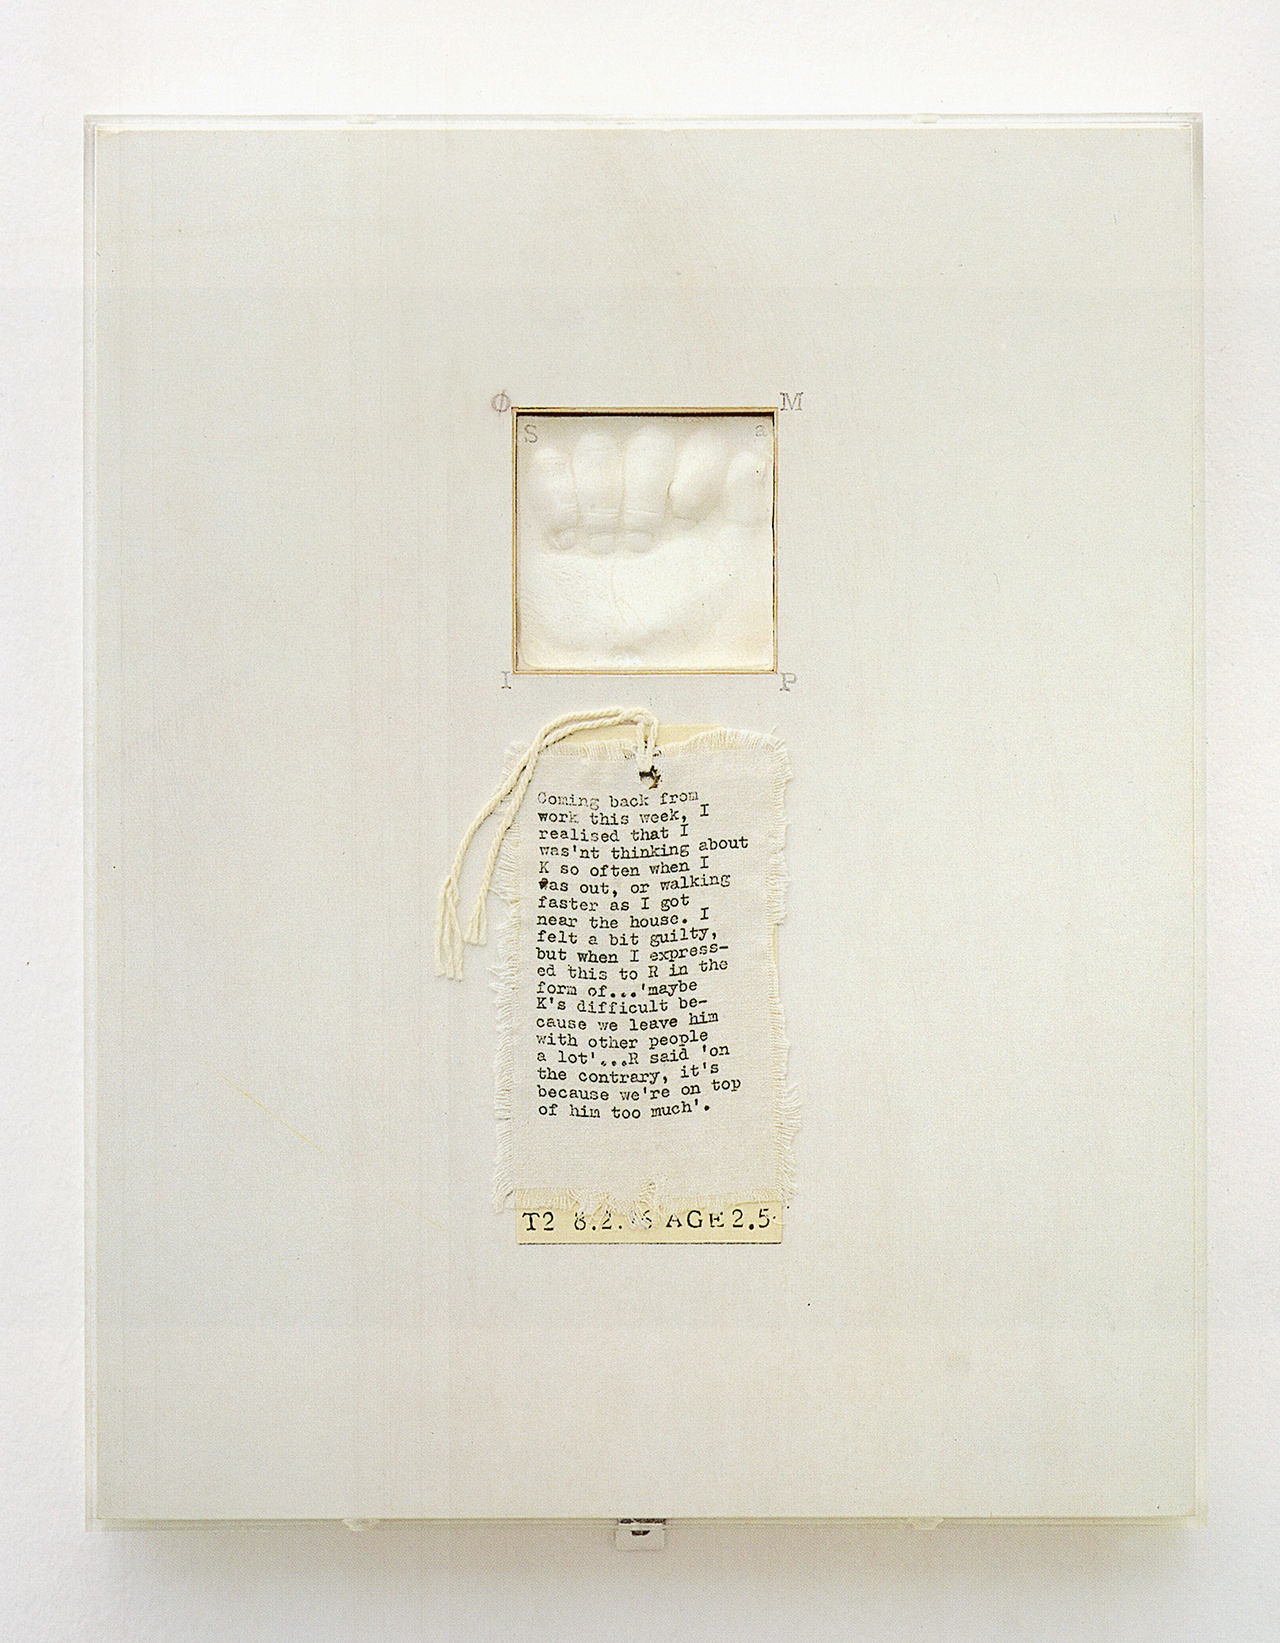 Ø M
S a
I P
Coming back from
work this week, I
realised that I
was'nt thinking about
K so often when I
was out, or walking
faster as I got
near the house. I
felt a bit guilty,
but when I express-
ed this to R in the
form of...'maybe
K's difficult be-
cause we leave him
with other people
a lot'...R said 'on
the contrary, it's
because we're on top
of him too much'.
T2 AGE 2.5